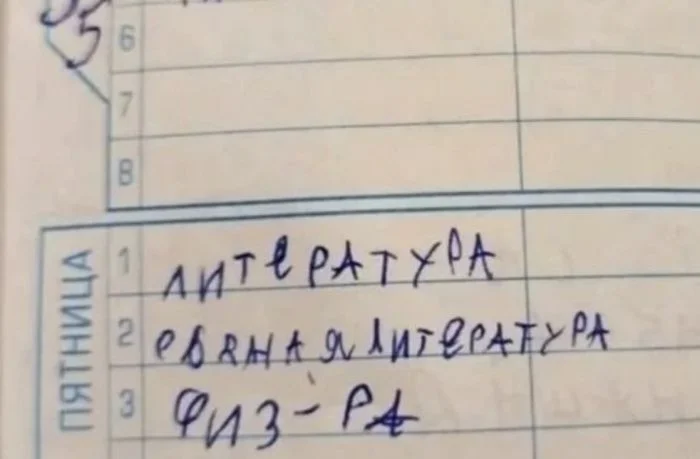 5
6
7
8
ПЯТНИЦА
1 ЛИТЕРАТУРА
2 РВАНАЯ ЛИТЕРАТУРА
3 ФИЗ-РА